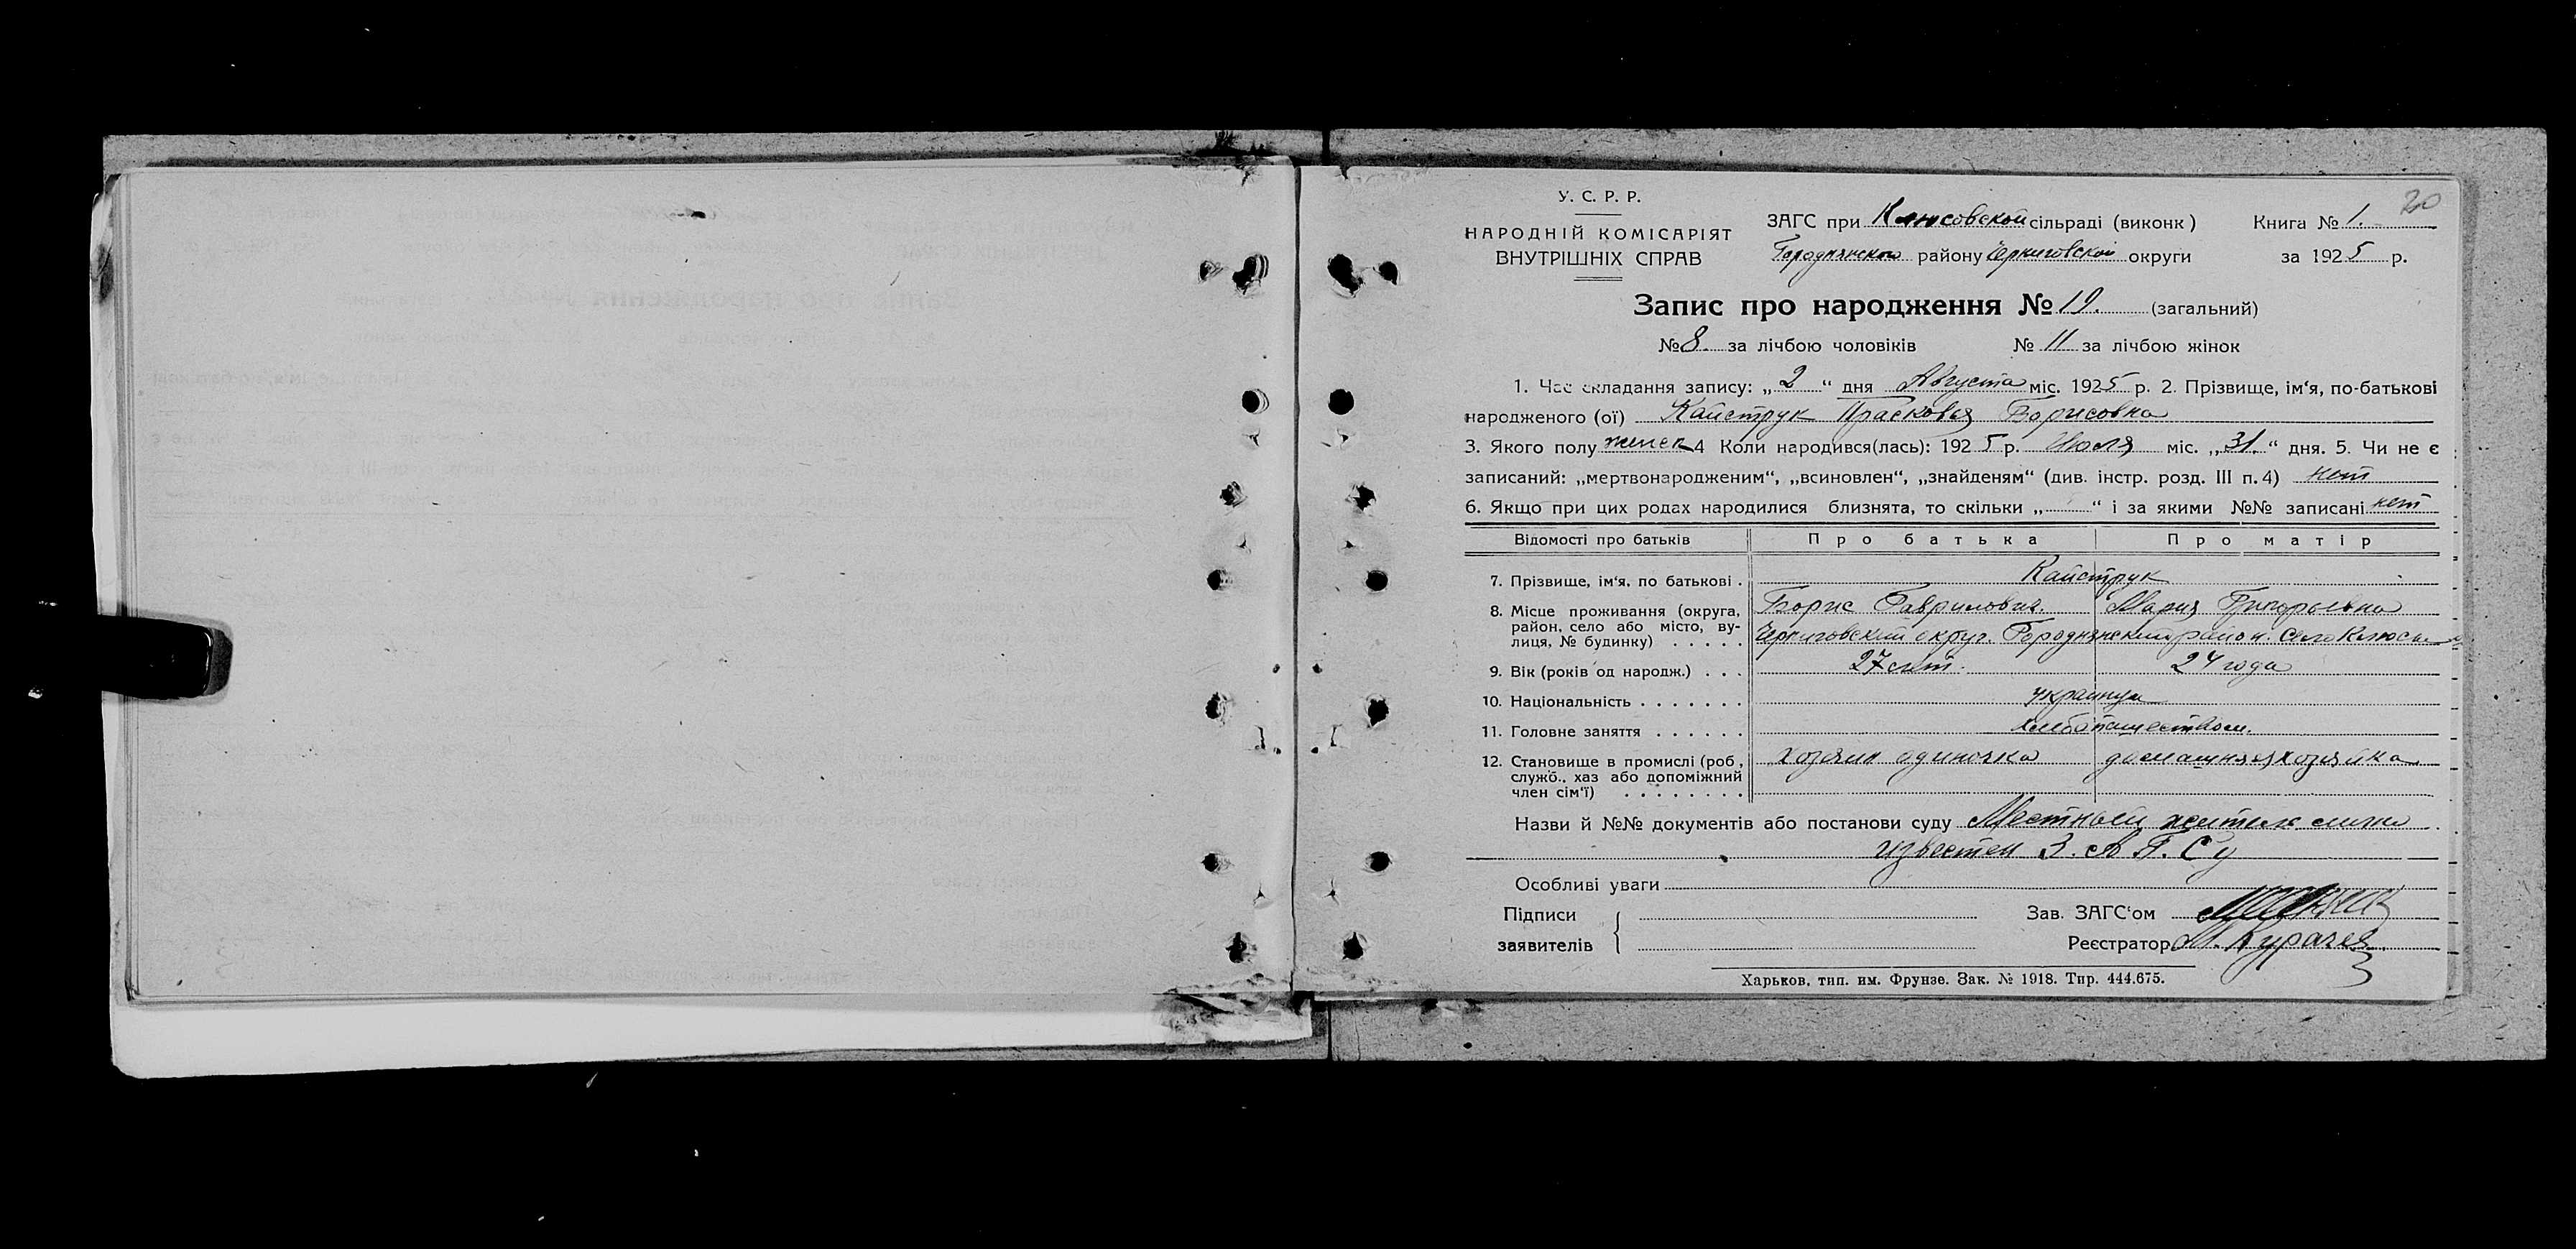 20
У. С. Р. Р.
НАРОДНІЙ КОМІСАРІЯТ
ВНУТРІШНІХ СПРАВ
ЗАГС при Клюсовской сільраді (виконк )
Городнянского району Черниговской округи
Книга № 1.
за 1925 р.
Запис про народження № 19. (загальний)
№ 8. за лічбою чоловіків № 11 за лічбою жінок
1. Час складання запису: „ 2 “ дня Августа міс. 1925 р. 2. Прізвище, ім‘я, по-батькові
народженого (ої) Кайструк Прасковья Борисовна
3. Якого полу женск 4 Коли народився(лась): 1925 р. Июля міс. „31.“ дня. 5. Чи не є
записаний: „мертвонародженим“, „всиновлен“, „знайденям“ (див. інстр. розд. III п. 4) нет
6. Якщо при цих родах народилися близнята, то скільки „ “ і за якими №№ записані нет
Відомості про батьків Про батька Про матір
7. Прізвище, ім‘я, по батькові . Кайструк
8. Місце проживання (округа, район, село або місто, ву- лиця, № будинку) . . . . .
Борис Гаврилович. Мария Григорьевна
Черниговский округ. Городнянский район. Село Клюсы
9. Вік (років од народж.) . . . 27 лет. 24 года
10. Національність . . . . . . . украинцы
11. Головне заняття . . . . . . хлебопашеством.
12. Становище в промислі (роб , служб., хаз або допоміжний член сім‘ї) . . . . . . . .
хозяин одиночка домашняя хозяйка
Назви й №№ документів або постанови суду Местный житель лично
известен З. А Г. Су
Особливі уваги
Підписи
заявителів
Зав. ЗАГС‘ом
Реєстратор
Харьков, тип. им. Фрунзе. Зак. № 1918. Тир. 444.675.